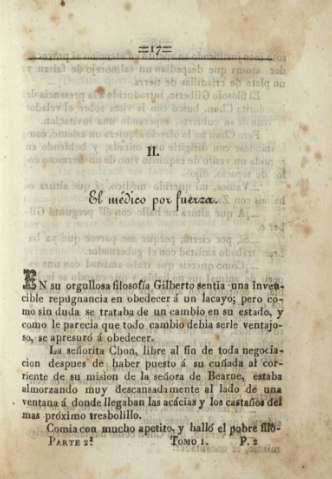 =17=
II.
El médico por fuerza.
EN su orgullosa filosofía Gilberto sentia una inven-
cible repugnancia en obedecer á un lacayo; pero co-
mo sin duda se trataba de un cambio en su estado, y
como le parecia que todo cambio debia serle ventajo-
so, se apresuró á obedecer.
La señorita Chon, libre al fin de toda negocia-
cion despues de haber puesto á su cuñada al cor-
riente de su mision de la señora de Bearne, estaba
almorzando muy descansadamente al lado de una
ventana á donde llegaban las acácias y los castaños del
mas próximo tresbolillo.
Comia con mucho apetito, y halló el pobre filó-
PARTE 2ª TOMO 1. P. 2